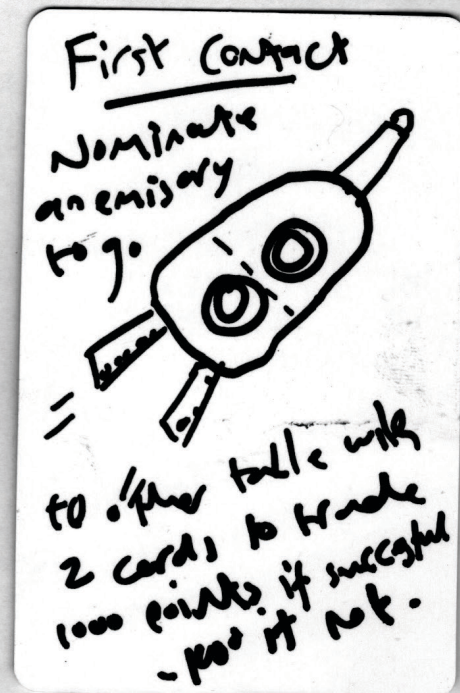 First Contact
Nominate
an emisary
to go
to other table with
2 cards to trade
1000 points if succesful
if not.